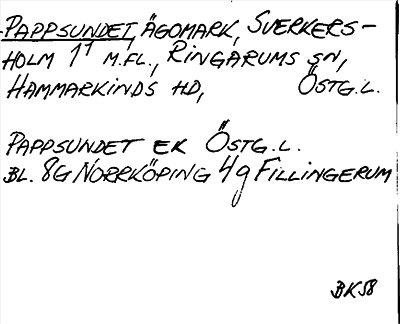 PAPPSUNDET, ÄGOMARK, SVERKERS-
HOLM 1¹ M.FL., RINGARUMS SN,
HAMMARKINDS HD, ÖSTG.L.
PAPPSUNDET EK ÖSTG.L.
BL. 8G NORRKÖPING 4g FILLINGERUM
BK58